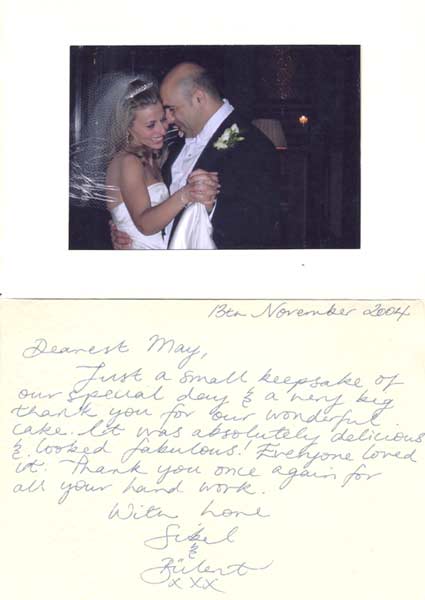 13th November 2004
Dearest May,
Just a small keepsake of
our special day & a very big
thank you for our wonderful
cake. It was absolutely delicious
& looked fabulous! Everyone loved
it. Thank you once again for
all your hard work.
With love
Sibel
&
Bülent
xxx